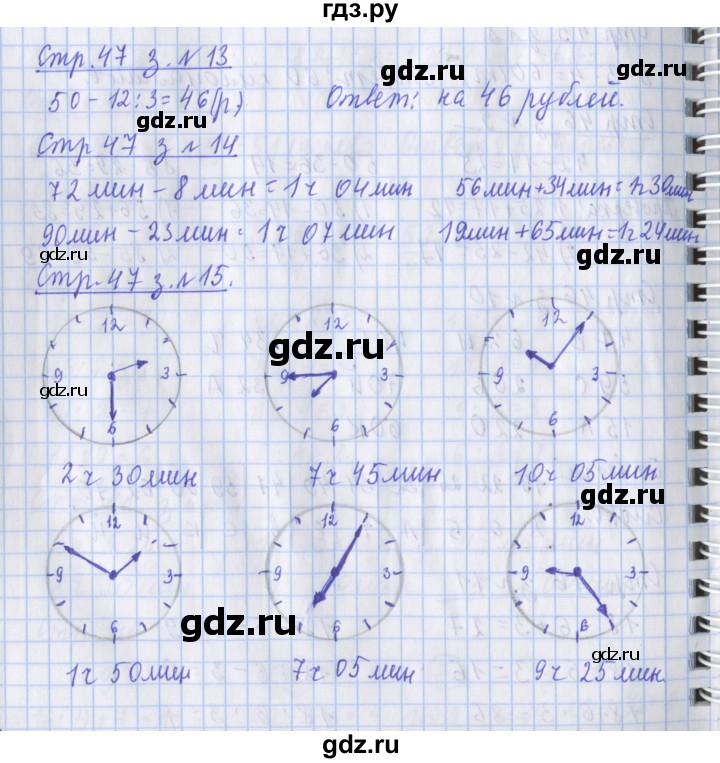 гдз.ру
Стр. 47 з. №13
50 - 12 : 3 = 46 (р) Ответ: на 46 рублей.
gdz.ru
gdz.ru
gdz.ru
Стр 47 з №14
72 мин - 8 мин = 1 ч 04 мин 56 мин + 34 мин = 1ч 30 мин
90 мин - 23 мин = 1 ч 07 мин 19 мин + 65 мин = 1ч 24 мин
gdz.ru
gdz.ru
Стр. 47 з. №15.
12 3 6
12 9 3 6
12 9 3 6
gdz.ru
gdz.ru
2 ч 30 мин 7 ч 45 мин 10 ч 05 мин
gdz.ru
12 9 3 6
12 9 3
12 9 3 6
gdz.ru
gdz.ru
1 ч 50 мин 7 ч 05 мин 9 ч 25 мин.
gdz.ru
gdz.ru